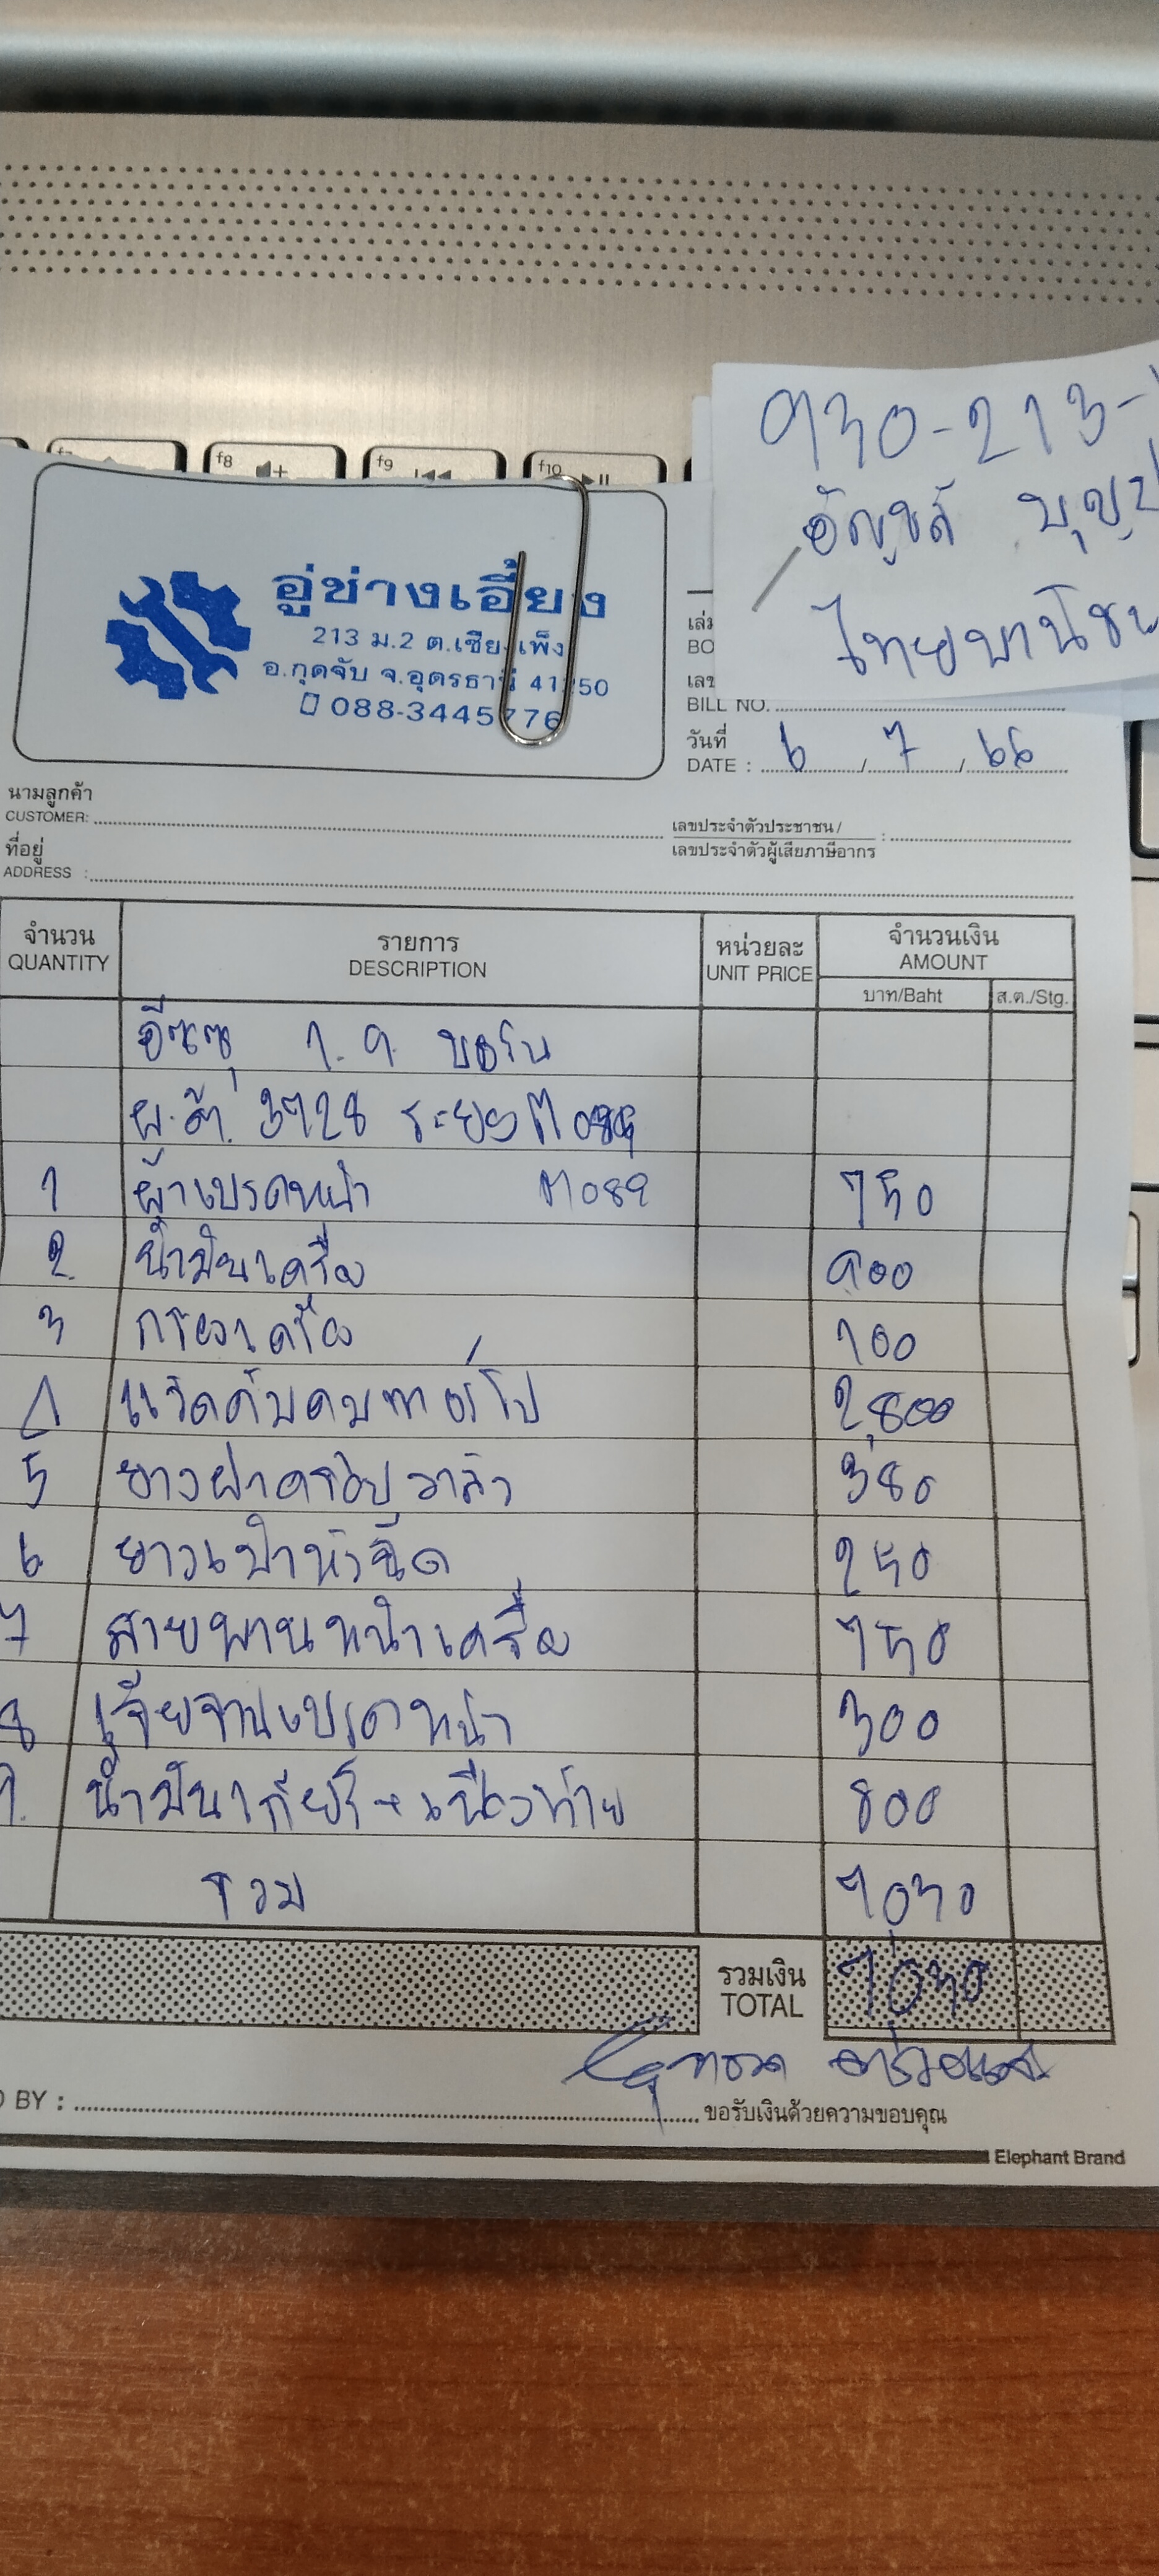 f8
f9
f10
930-213-
อัญชลี
ไทยพาณิช
อู่ช่างเอี้ยง
213 ม.2 ต.เชียงเพ็ง
อ.กุดจับ จ.อุดรธานี 41250
088-3445776
BILL NO.
วันที่
DATE : 6 / 7 / 66
นามลูกค้า
CUSTOMER:
เลขประจำตัวประชาชน /
เลขประจำตัวผู้เสียภาษีอากร :
ที่อยู่
ADDRESS :
จำนวน รายการ หน่วยละ จำนวนเงิน
QUANTITY DESCRIPTION UNIT PRICE AMOUNT
บาท/Baht ส.ต./Stg.
อีซูซุ
3728
1 ผ้าเบรคหน้า 750
2 น้ำมันเครื่อง 900
3 กรองเครื่อง 100
4 2,800
5 ยางฝาครอบวาล์ว 380
6 ยางเบ้าหัวฉีด 250
7 สายพานหน้าเครื่อง 750
8 เจียจานเบรคหน้า 300
9. น้ำมันเกียร์ + เฟืองท้าย 800
รวม 7030
รวมเงิน
TOTAL 7030
BY :
ขอรับเงินด้วยความขอบคุณ
Elephant Brand